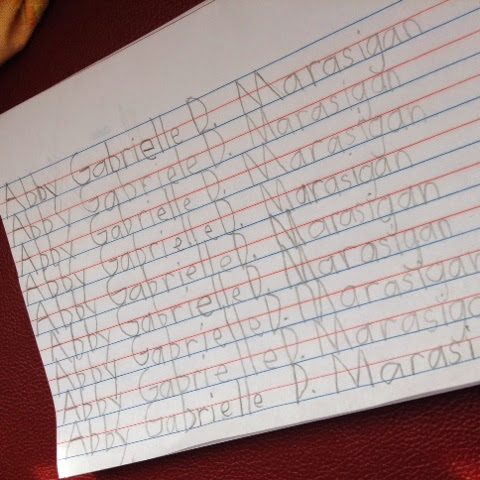 Abby Gabrielle D. Marasigan
Abby Gabriele D. Marasigan
Abby Gabrielle D. Marasigan
Abby Gabrielle D. Marasigan
Abby Gabrielle D. Marasigan
Abby Gabrielle D. Marasigan
Abby Gabrielle D. Marasigan
Abby Gabrielle D. Marasiga
Abby Gabrielle D. Marasi